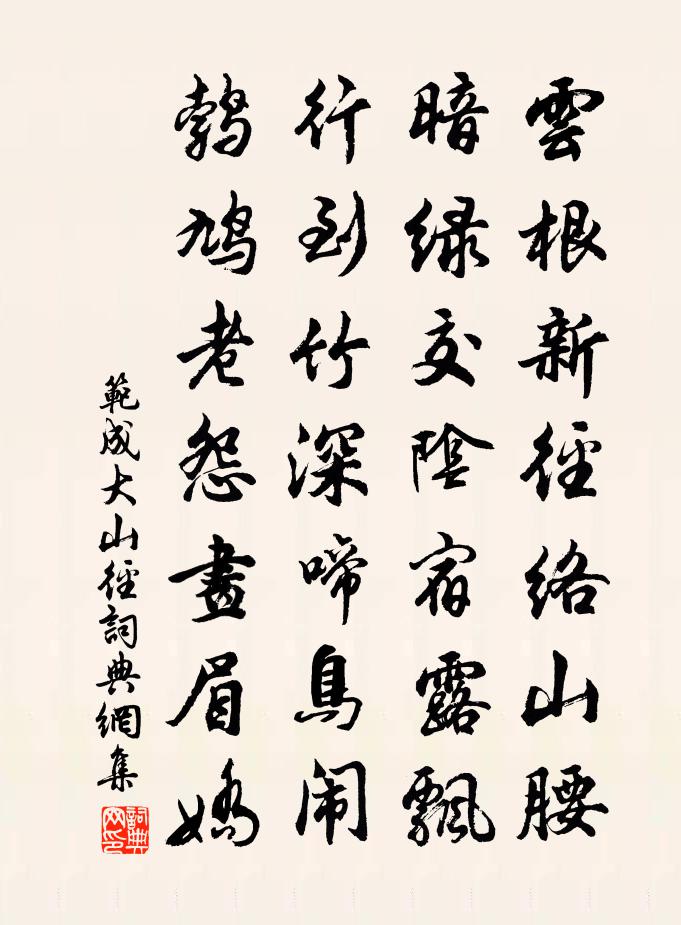 雲根新徑絡山腰
暗緑交陰宿露飄
行到竹深啼鳥闹
鵓鳩老怨畫眉嬌
範成大山徑詞典網集
詞典
网印